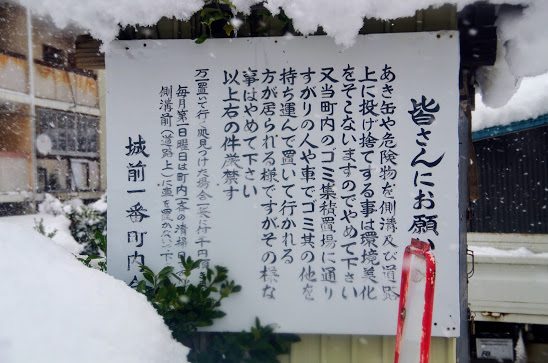 皆さんにお願い
あき缶や危険物を側溝及び道路
上に投げ捨てする事は環境美化
をそこないますのでやめて下さい
又当町内のゴミ集積置場に通り
すがりの人や車でゴミ其の他を
持ち運んで置いて行かれる
方が居られる様ですがその様な
事はやめて下さい
以上右の件厳禁す
万一置いて行く処見つけた場合
毎月第一日曜日は町内一斉の清掃
側溝前(道路上)に車を置かないで下さい
城前一番町内会